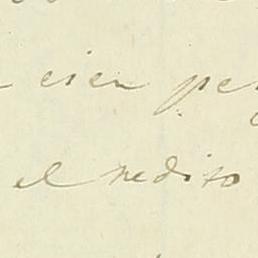 cien pe
el redito